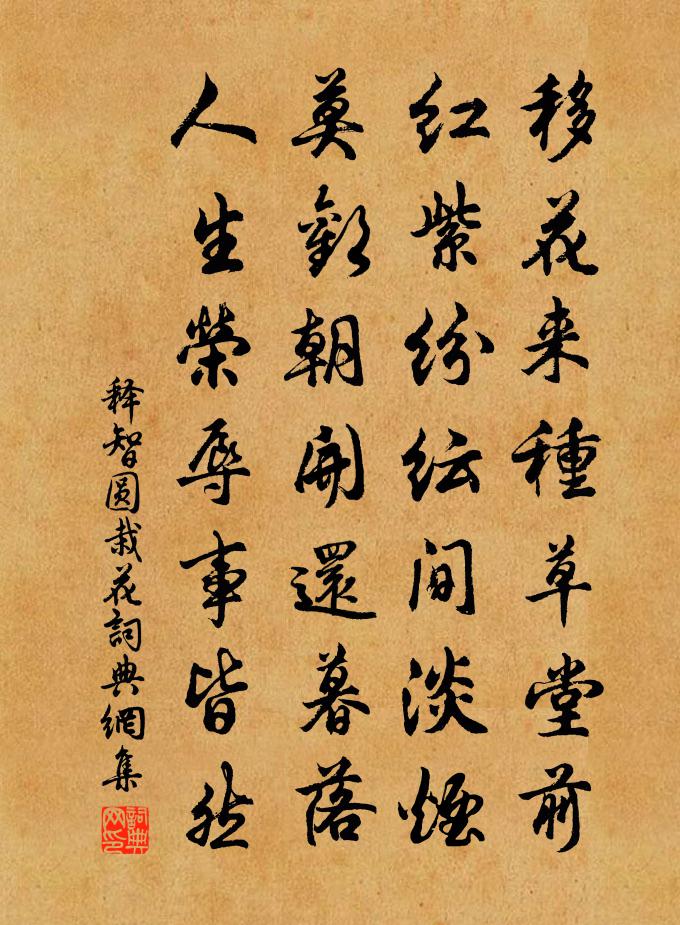 移花来種草堂前
紅紫紛紜間淡煙
莫歎朝開還暮落
人生榮辱事皆然
释智圆栽花詞典網集
詞典网印